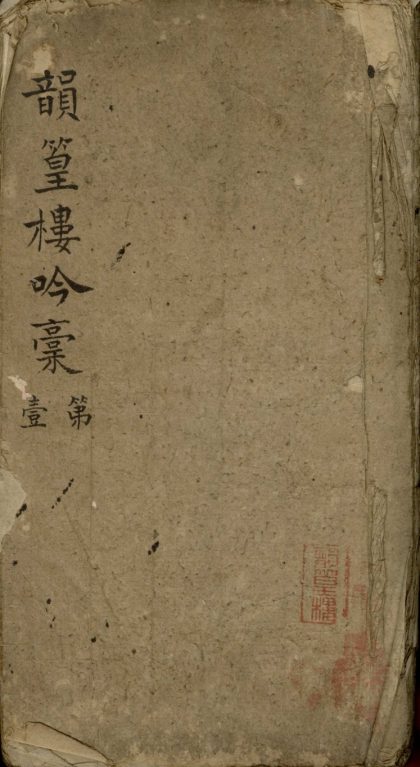 韻篁樓吟稾
第壹
韻篁樓